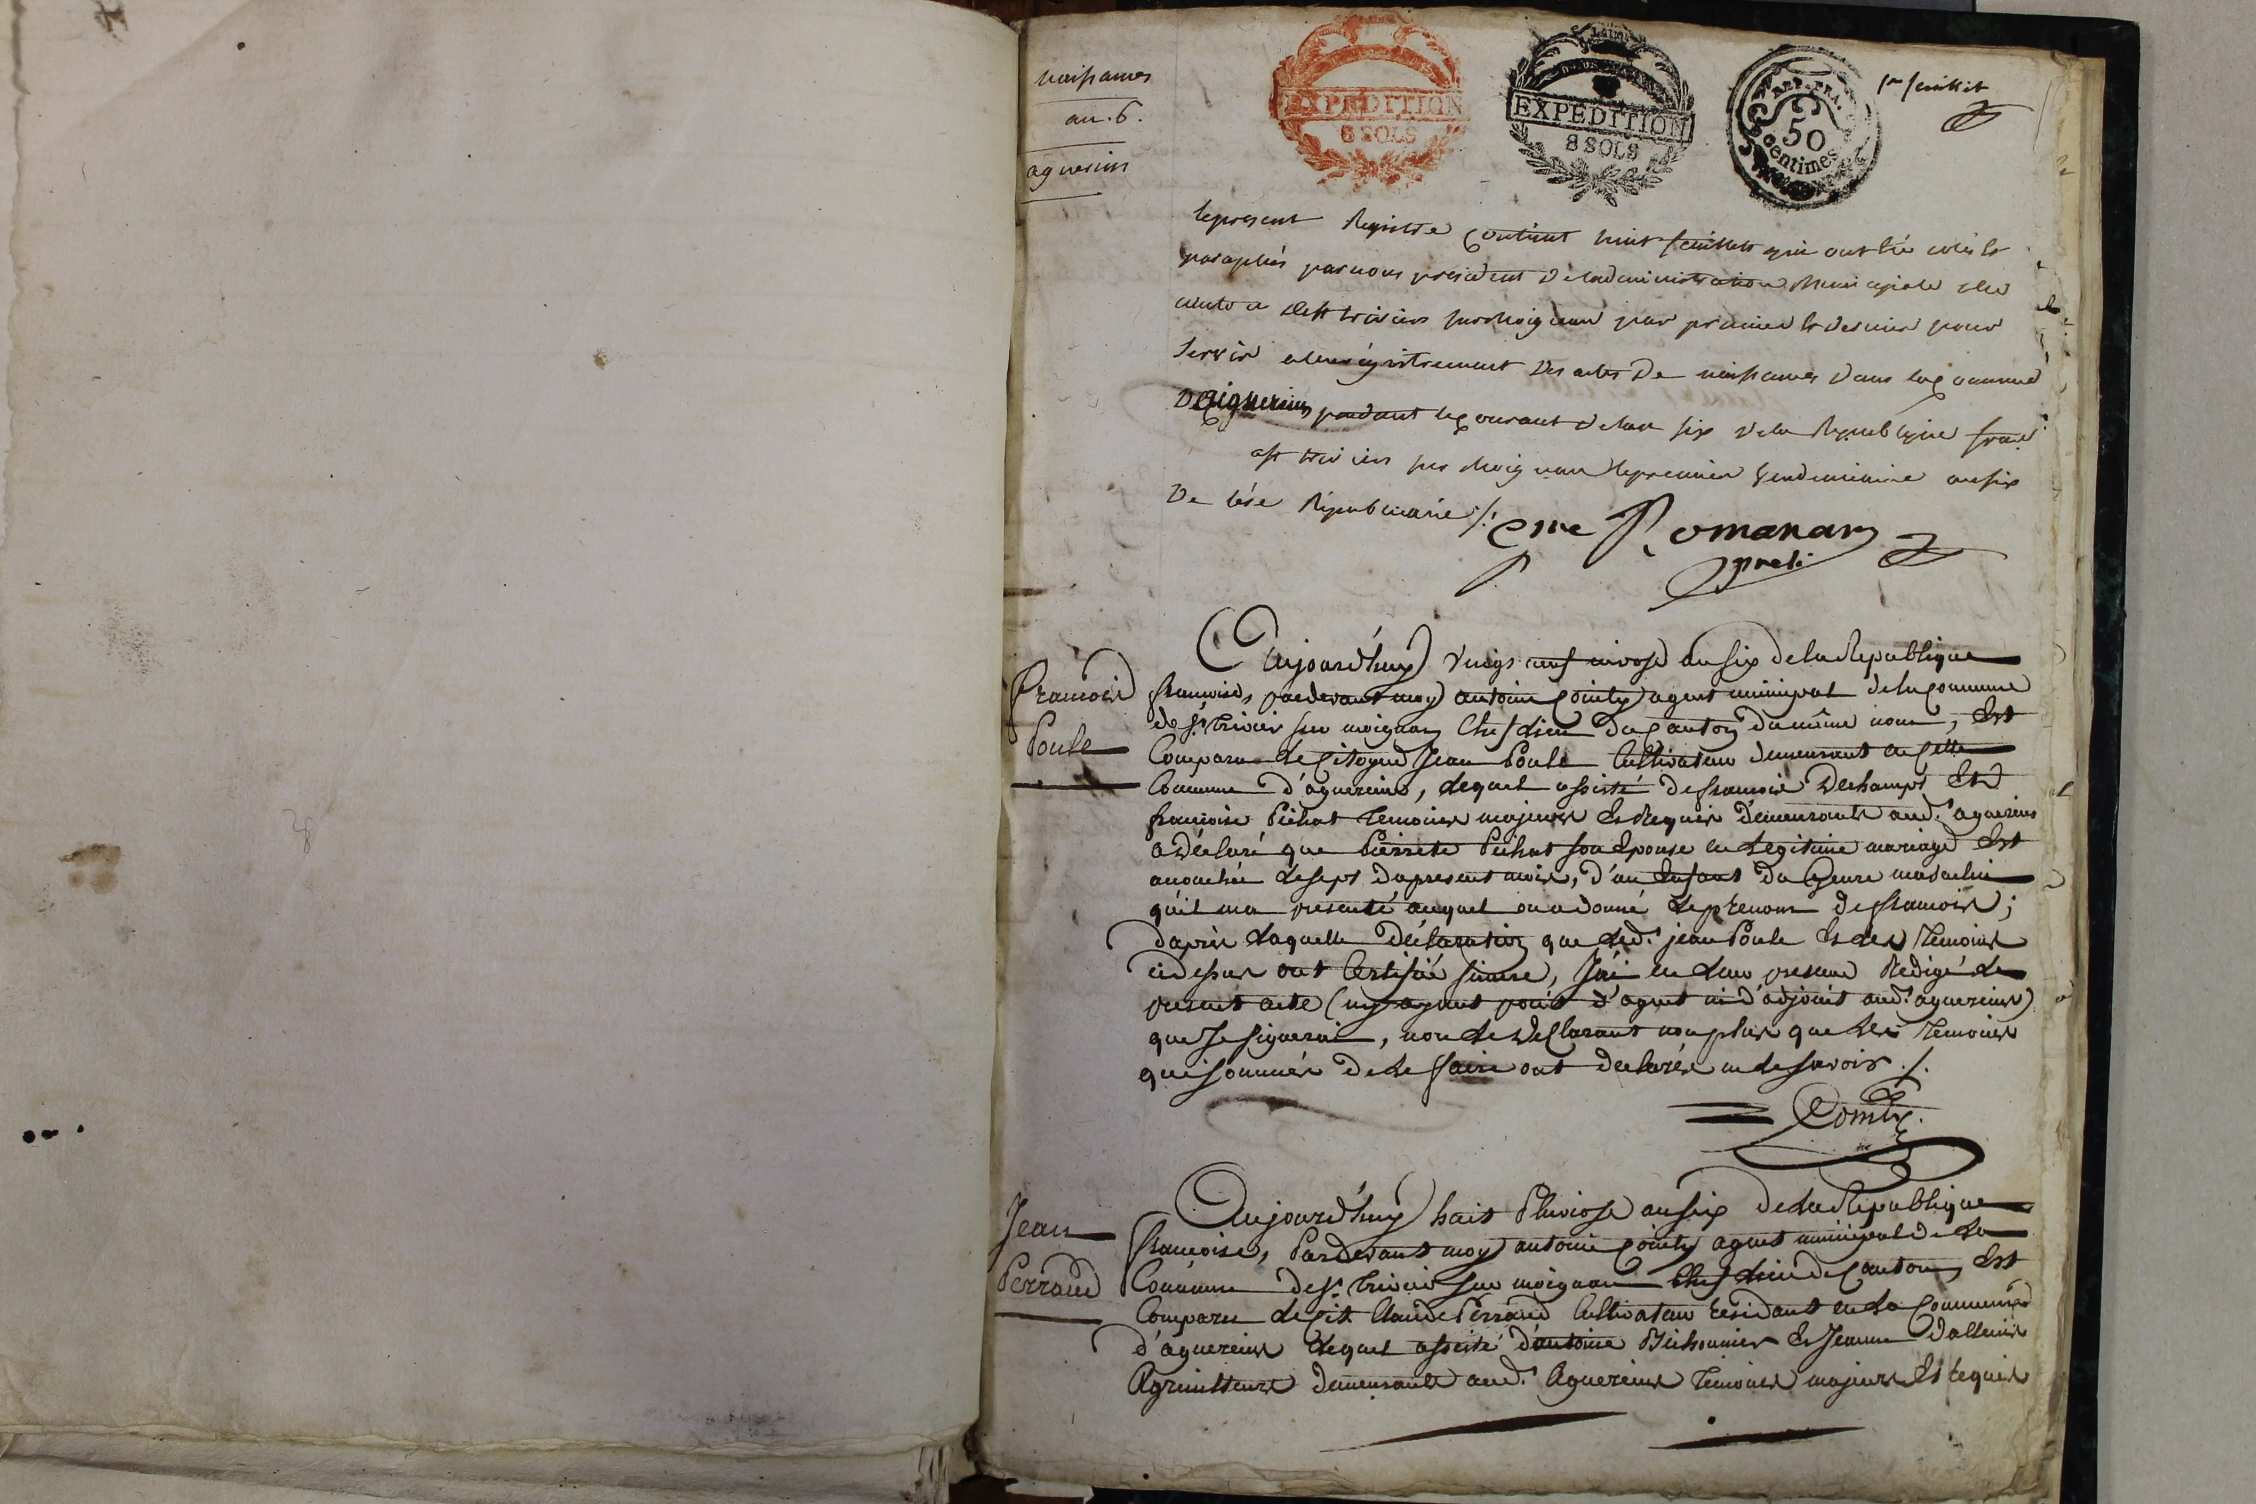 naissances
an. 6.
aguereins
EXPEDITION
8 SOLS
EXPEDITION
8 SOLS
REP. FRA.
50
centimes
1er feuillet
le present Registre contient huit feuillets qui ont été cotés et
paraphés par nous president de l'administration Municipale du
canton de st trivier sur moignan par premier et dernier pour
servir a l'enregistrement des actes de naissances dans la commune
D'aiguereins pendant le courant de l'an six de la Republique franc.
a st trivier sur Moignan le premier vendemiaire an six
De l'ére Républicaine ./.
presi.
francois
Poule
Aujourd'huy vingt neuf nivose an six de la Republique
francoise, pardevant moy antoine Cointy agent municipal de la commune
de st. trivier sur moignan Chef lieu du Canton du même nom, Est
Comparu le Citoyen Jean Poule Cultivateur demeurant en cette
Commune d'aguereins, lequel assisté de francois Dechamps Et
francoise Pichat temoins majeurs Et Requis demeurants aud. aguereins
a déclaré que Pierrete Pichat son Epouse en Legitime mariage Est
accouchée le sept du present mois, d'un Enfant du Genre masculin
qu'il ma presenté auquel on a donné le prenom de francois;
d'après laquelle déclaration que led. jean Poule Et les temoins
cidessus ont Certifié sincere, J'ai en leur presence Redigé le
present acte (n'y ayant point d'agent ni d'adjoint aud. aguereins)
que Je signerai, non le Declarant non plus que les temoins
qui sommés de le faire ont declarés ne le savoir ./.
Cointy
Jean
Perraud
Aujourd'huy huit Pluviose an six de la Republique
francoise, Pardevant moy antoine Cointy agent municipal de la
Commune de st. trivier sur moignan Chef lieu de Canton, Est
Comparu le Cit. Claude Perraud Cultivateur residant en la Commune
d'aguereins lequel assisté d'antoine Bichonnier Et Jeanne
Agriculteurs demeurants aud. Aguereins temoins majeurs Et requis